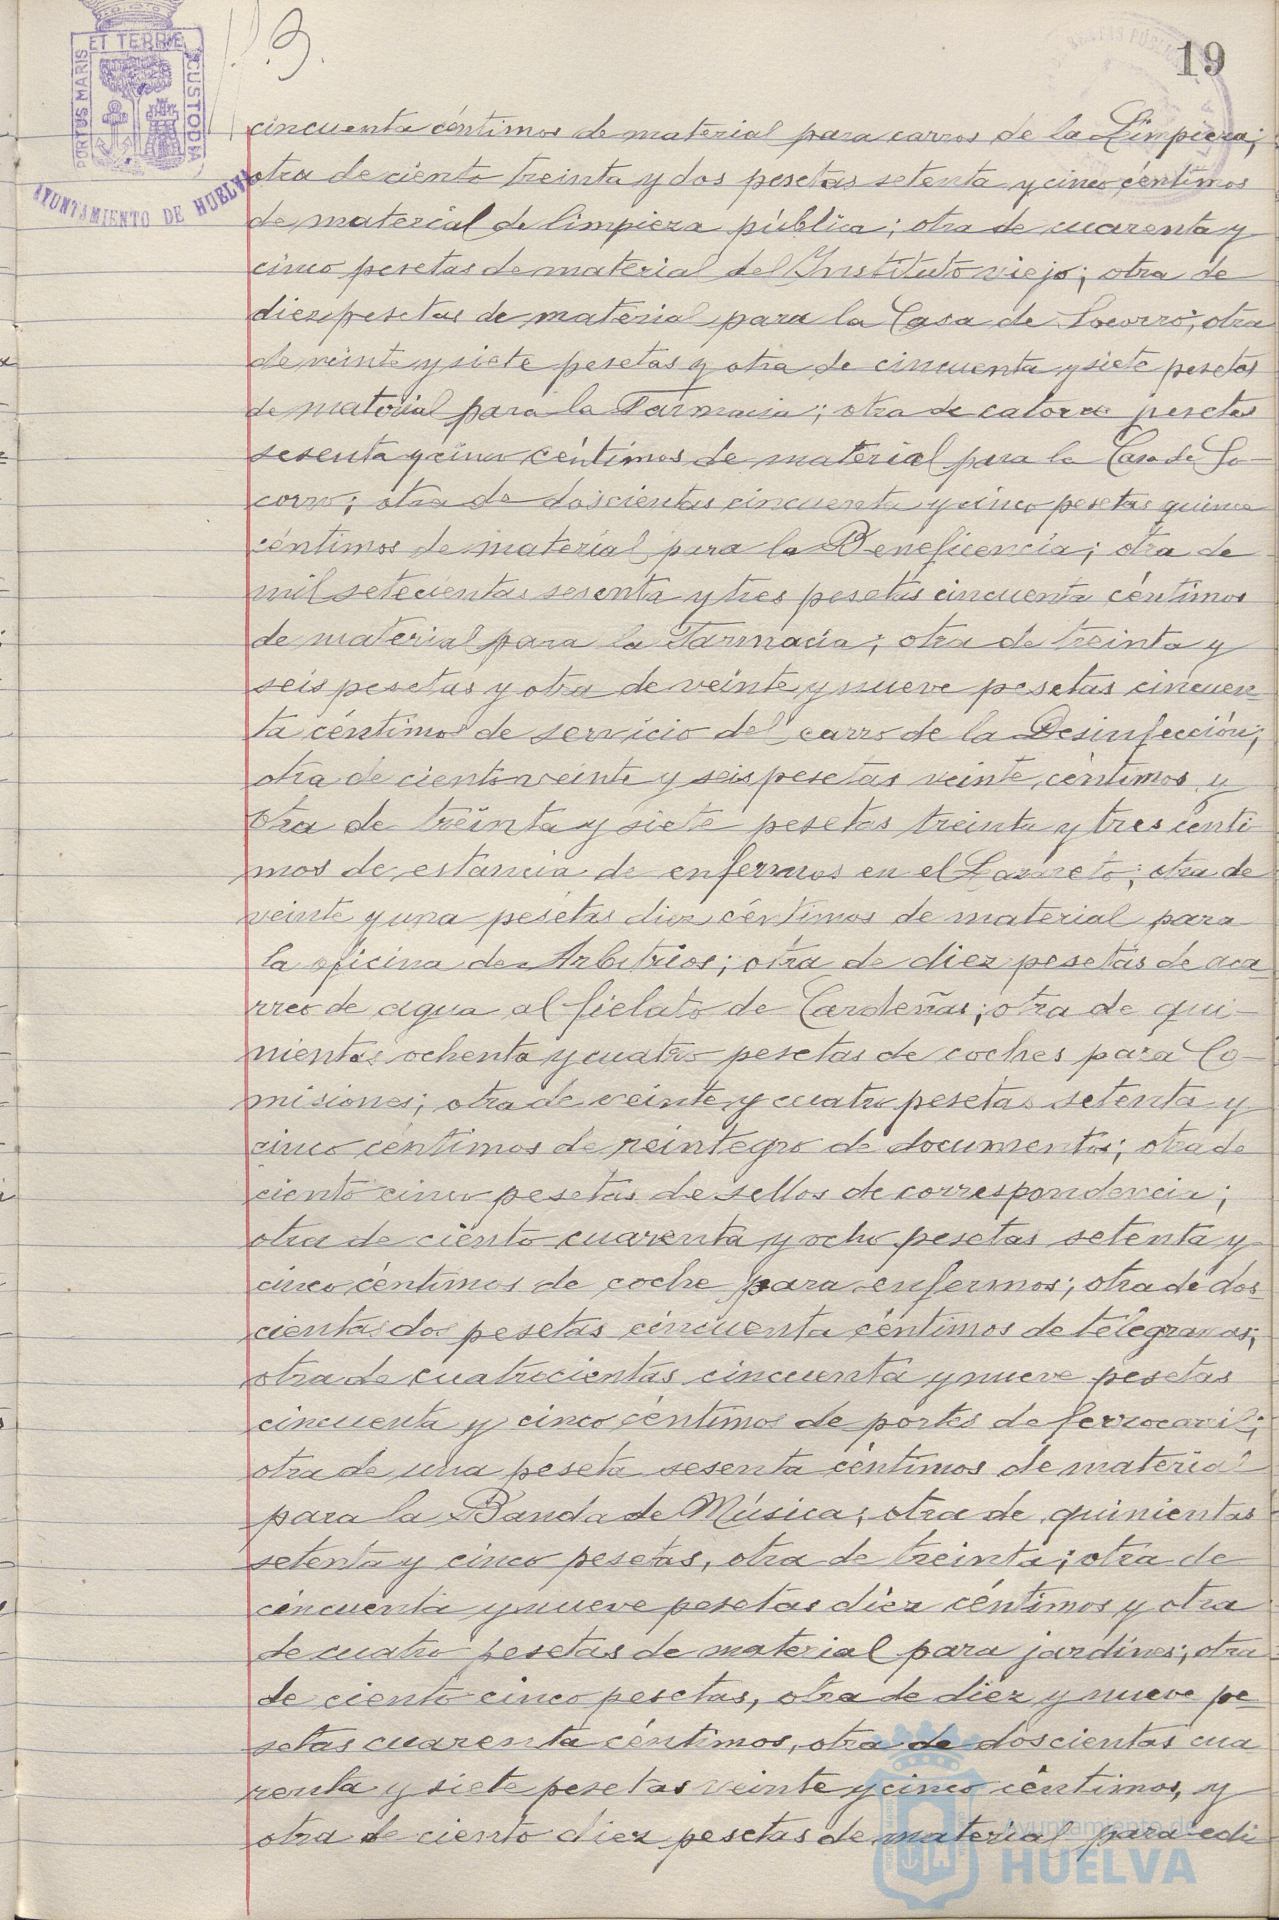 19
3.
PORTUS MARIS ET TERRE CUSTODIA
AYUNTAMIENTO DE HUELVA
cincuenta céntimos de material para carros de la Limpieza;
otra de ciento treinta y dos pesetas setenta y cinco céntimos
de material de limpieza pública; otra de cuarenta y
cinco pesetas de material del Instituto viejo; otra de
diez pesetas de material para la Casa de Socorro; otra
de veinte y siete pesetas y otra de cincuenta y siete pesetas
de material para la Farmacia; otra de catorce pesetas
sesenta y cinco céntimos de material para la Casa de So-
corro; otra de doscientas cincuenta y cinco pesetas quince
céntimos de material para la Beneficencia; otra de
mil setecientas sesenta y tres pesetas cincuenta céntimos
de material para la Farmacia; otra de treinta y
seis pesetas y otra de veinte y nueve pesetas cincuen-
ta céntimos de servicio del carro de la Desinfección;
otra de ciento veinte y seis pesetas veinte céntimos y
otra de treinta y siete pesetas treinta y tres centi
mos de estancia de enfermos en el Lazareto; otra de
veinte y una pesetas diez céntimos de material para
la oficina de Arbitrios; otra de diez pesetas de aca-
rreo de agua al fielato de Cardeñas; otra de qui-
nientas ochenta y cuatro pesetas de coches para Co-
misiones; otra de veinte y cuatro pesetas setenta y
cinco céntimos de reintegro de documentos; otra de
ciento cinco pesetas de sellos de correspondencia;
otra de ciento cuarenta y ocho pesetas setenta y
cinco céntimos de coche para enfermos; otra de dos-
cientas dos pesetas cincuenta céntimos de telégramas;
otra de cuatrocientas cincuenta y nueve pesetas
cincuenta y cinco céntimos de portes de ferrocarril;
otra de una peseta sesenta céntimos de material
para la Banda de Música; otra de quinientas
setenta y cinco pesetas, otra de treinta; otra de
cincuenta y nueve pesetas diez céntimos y otra
de cuatro pesetas de material para jardines; otra
de ciento cinco pesetas, otra de diez y nueve pe-
setas cuarenta céntimos, otra de doscientas cua
renta y siete pesetas veinte y cinco céntimos, y
otra de ciento diez pesetas de material para edi
Ayuntamiento de
HUELVA